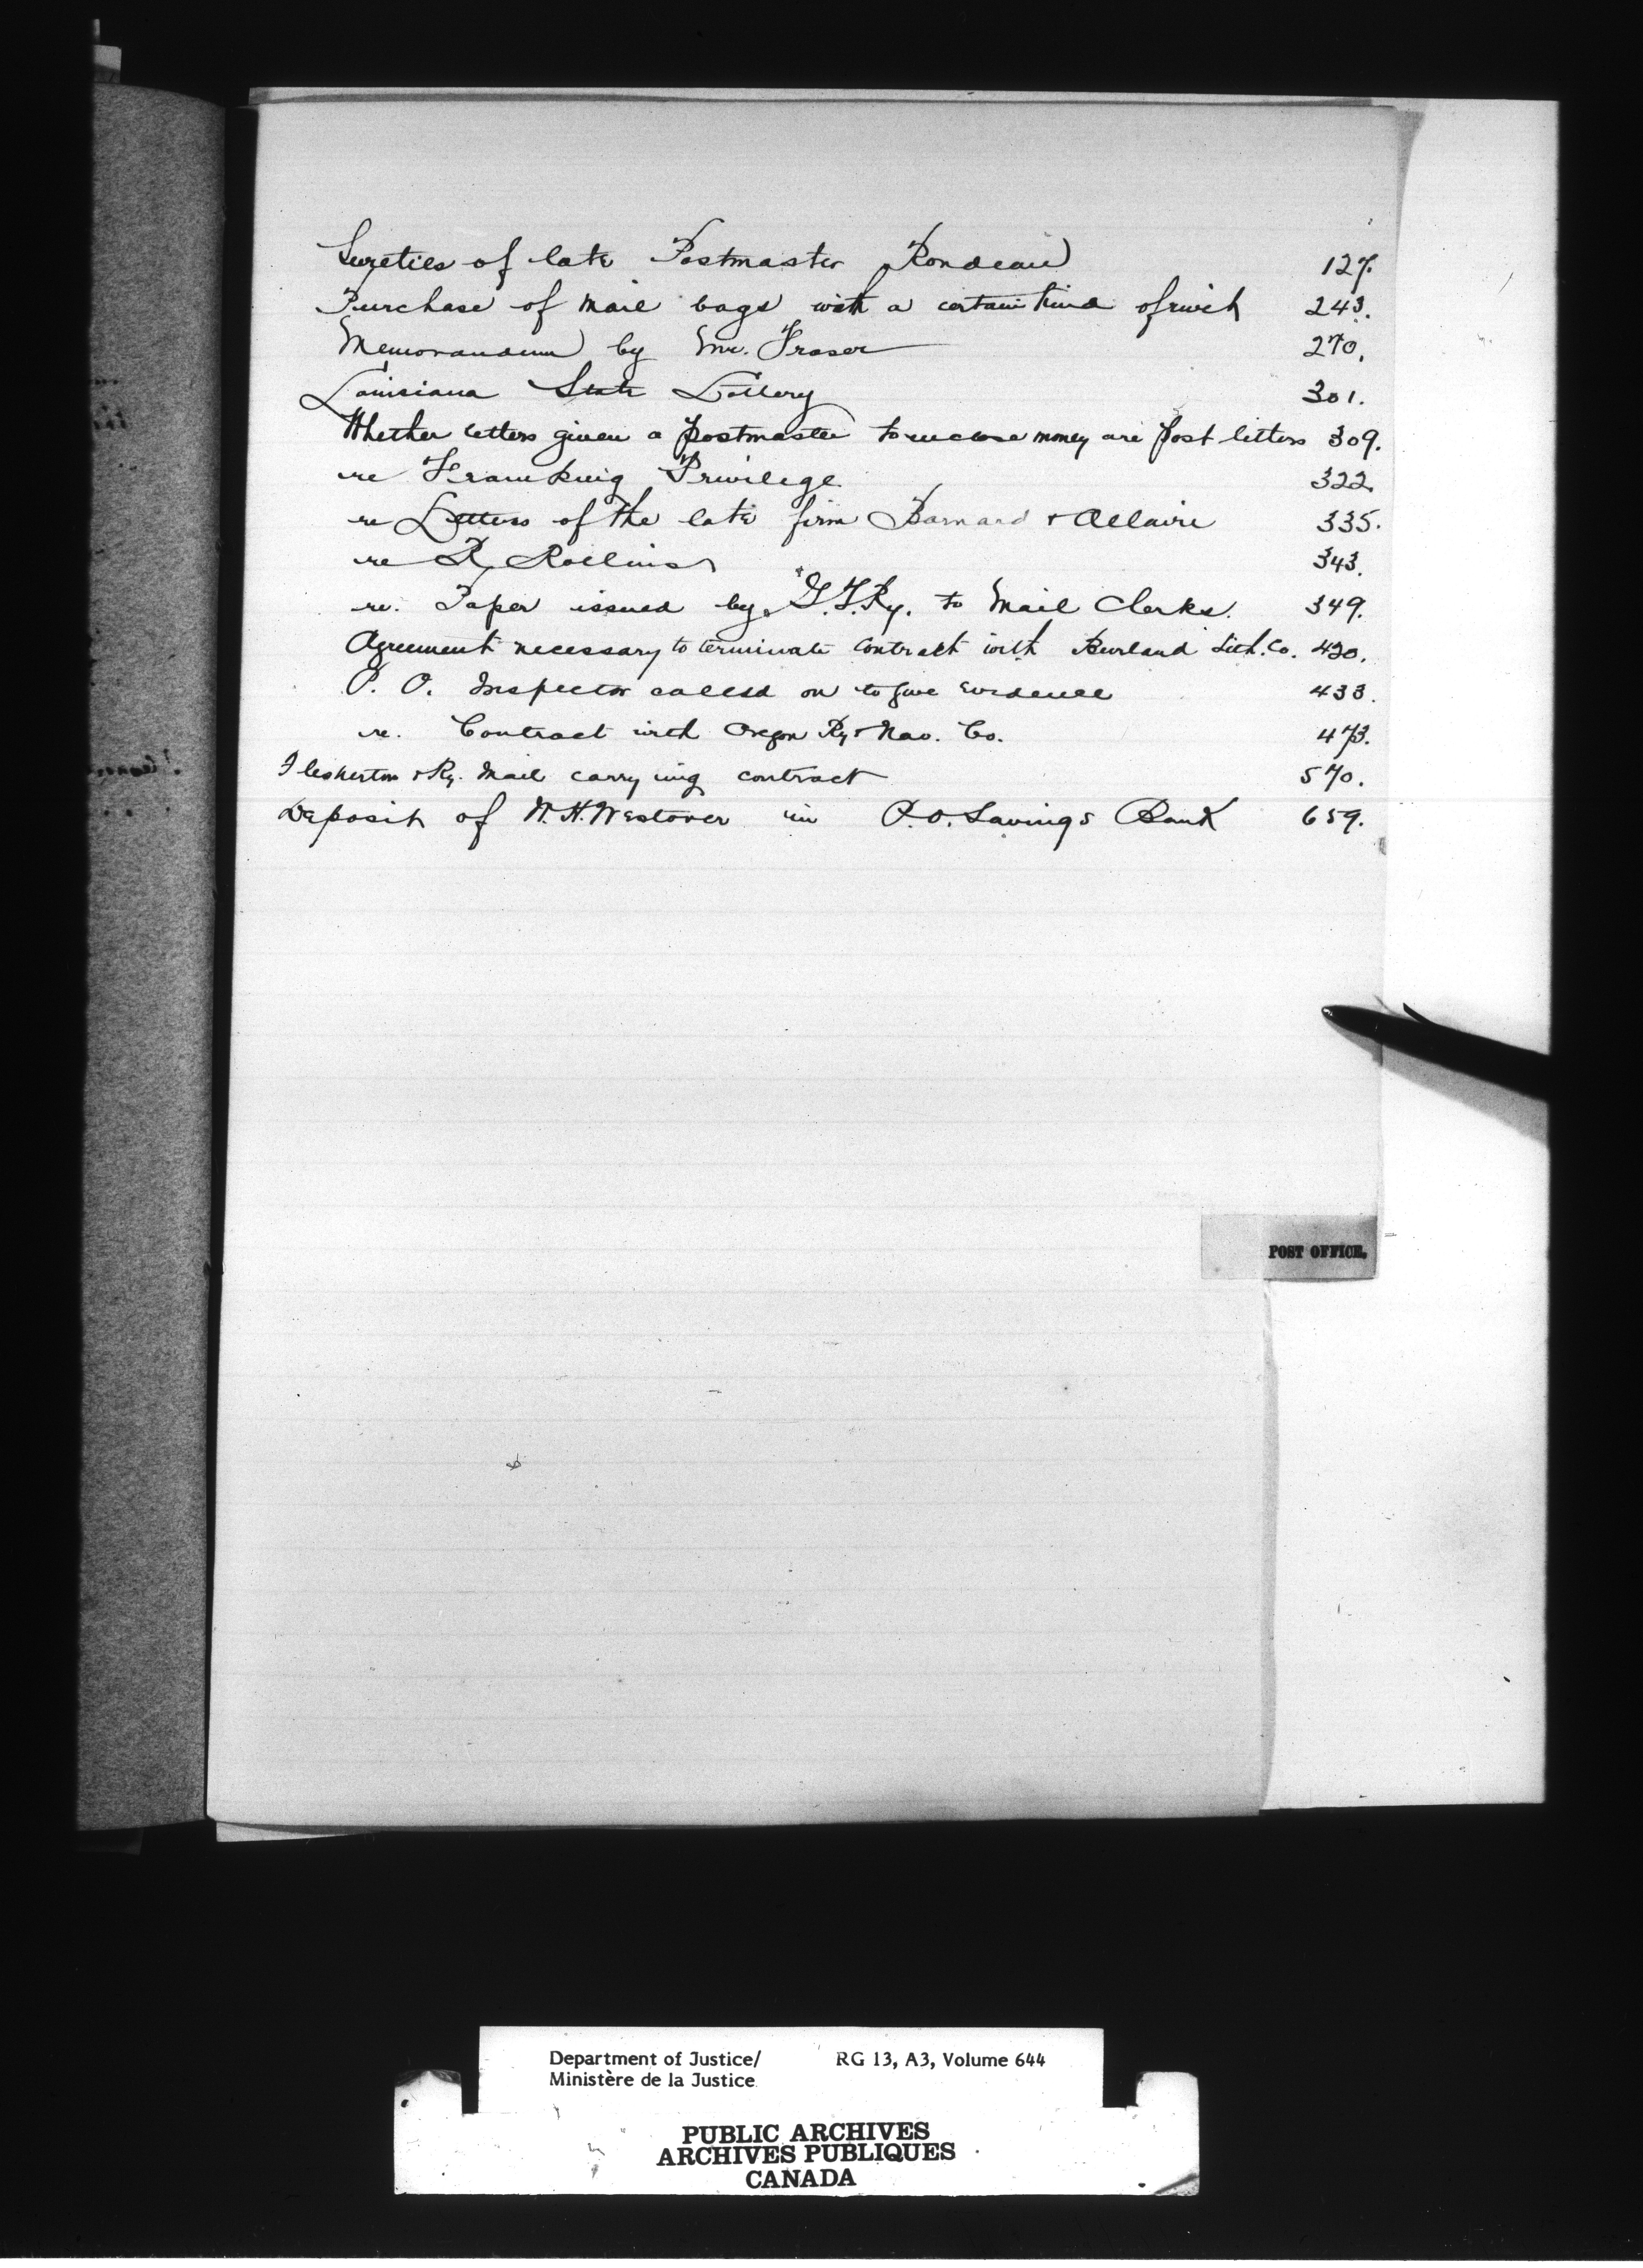 Sureties of late Postmaster Rondeau 127.
Purchase of mail bags with a certain kind of rivet 243.
Memorandum by Mr. Fraser 270.
Louisiana State Lottery 301.
Whether letters given a postmaster to enclose money are post letters 309.
re Franking Privilege 322.
re Letters of the late firm Barnard & Allaire 335.
re R. Rollins 343.
re. Paper issued by G.T.Ry. to Mail Clerks. 349.
Agreement necessary to terminate contract with Burland Lith. Co. 420.
P. O. Inspector called on to give evidence 433.
re. Contract with Oregon Ry & Nav. Co. 473.
Flesherton & Ry. Mail carrying contract 570.
Deposit of W.H. Westover in P.O. Savings Bank 659.
POST OFFICE.
Department of Justice/ RG 13, A3, Volume 644
Ministère de la Justice
PUBLIC ARCHIVES
ARCHIVES PUBLIQUES
CANADA